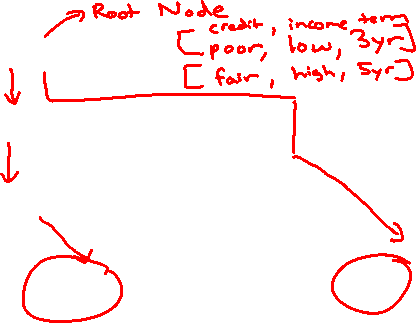 Root Node
credit, income, term
[poor, low, 3yr]
[fair, high, 5yr]